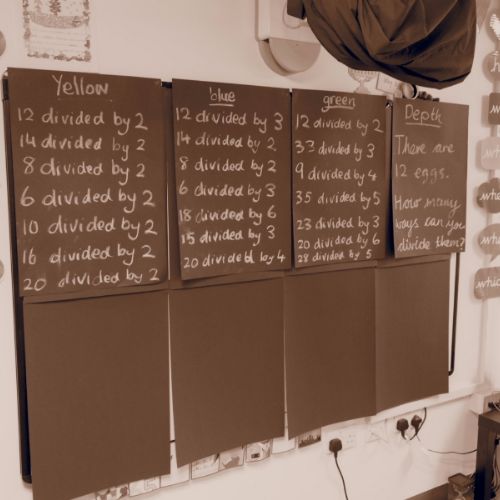 Yellow
12 divided by 2
14 divided by 2
8 divided by 2
6 divided by 2
10 divided by 2
16 divided by 2
20 divided by 2
blue
12 divided by 3
14 divided by 2
8 divided by 2
6 divided by 3
18 divided by 6
15 divided by 3
20 divided by 4
green
12 divided by 2
33 divided by 3
9 divided by 4
35 divided by 5
23 divided by 3
20 divided by 6
28 divided by 5
Depth
There are
12 eggs.
How many
ways can you
divide them?